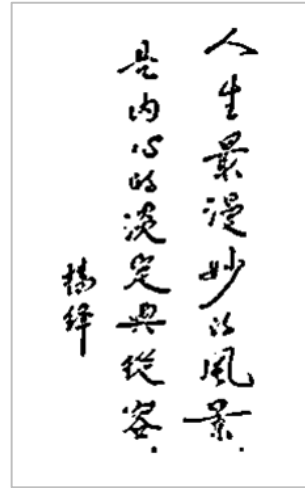 人生最漫妙的風景.
是内心的淡定與從容.
楊絳